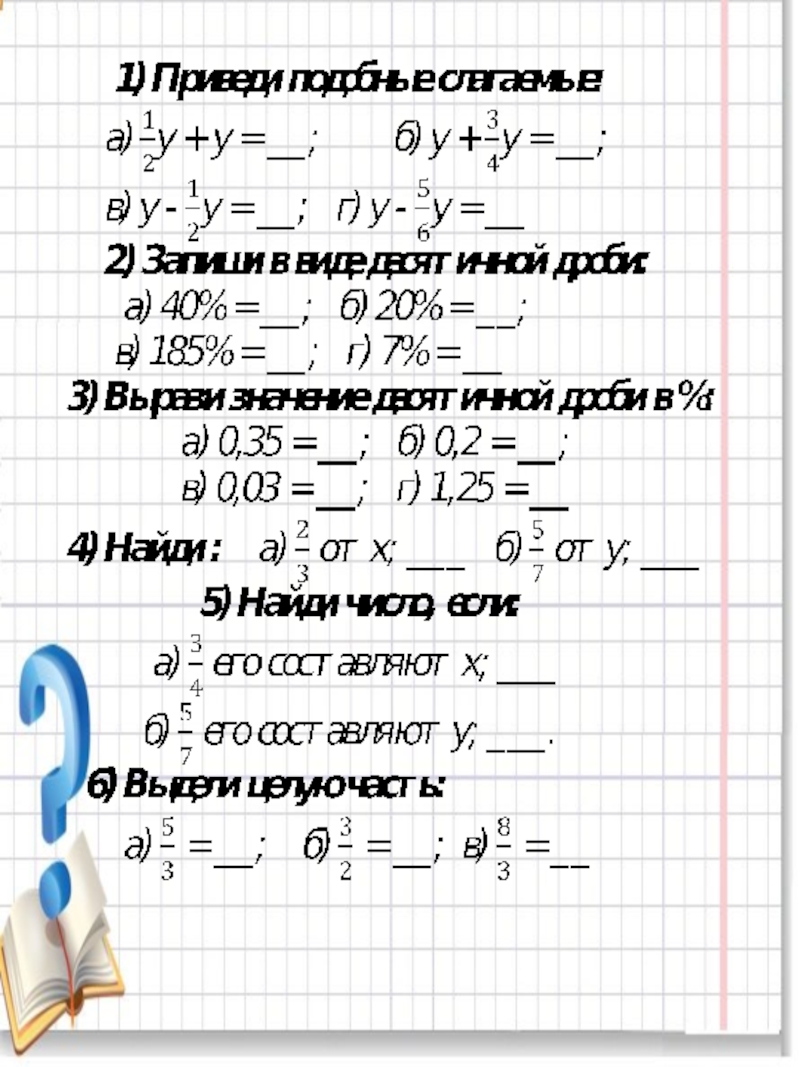 1) Приведи подобные слагаемые:
а) 1/2 y + y = __; б) y + 3/4 y = __;
в) y - 1/2 y = __; г) y - 5/6 y = __
2) Запиши в виде десятичной дроби:
а) 40% = __; б) 20% = __;
в) 185% = __; г) 7% = __
3) Вырази значение десятичной дроби в %:
а) 0,35 = __; б) 0,2 = __;
в) 0,03 = __; г) 1,25 = __
4) Найди: а) 2/3 от x; ___ б) 5/7 от y; ___
5) Найди число, если:
а) 3/4 его составляют x; ___
б) 5/7 его составляют y; ___.
6) Выдели целую часть:
а) 5/3 = __; б) 3/2 = __; в) 8/3 = __